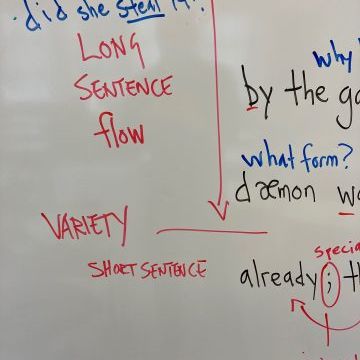 did she steal it?
LONG
SENTENCE
flow
why
by the go
what form?
dæmon
VARIETY
SHORT SENTENCE
special
already; th